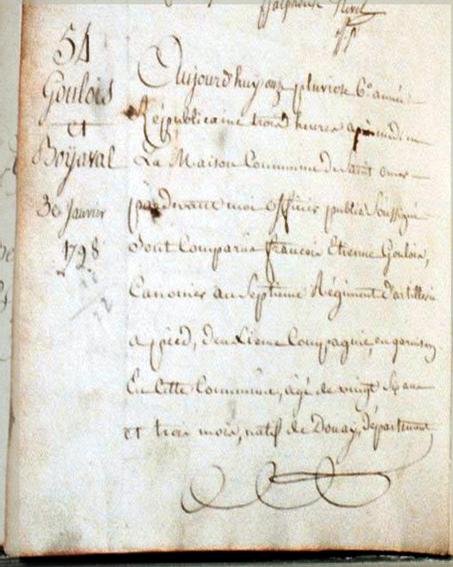 54
Goulois
et
Boyaval
30 Janvier
1798
Aujourd'huy onze pluviose 6e. année
Républicaine trois heures après midi en
La Maison Commune de Saint omer
pardevant moi officier public Soussigné
Sont Comparus françois Etienne Goulois,
Canonier au Septieme Régiment d'artillerie
a pied, deuxieme Compagnie, en garnison
En Cette Commune, agé de vingt ans
et trois mois, natif de Douay, département